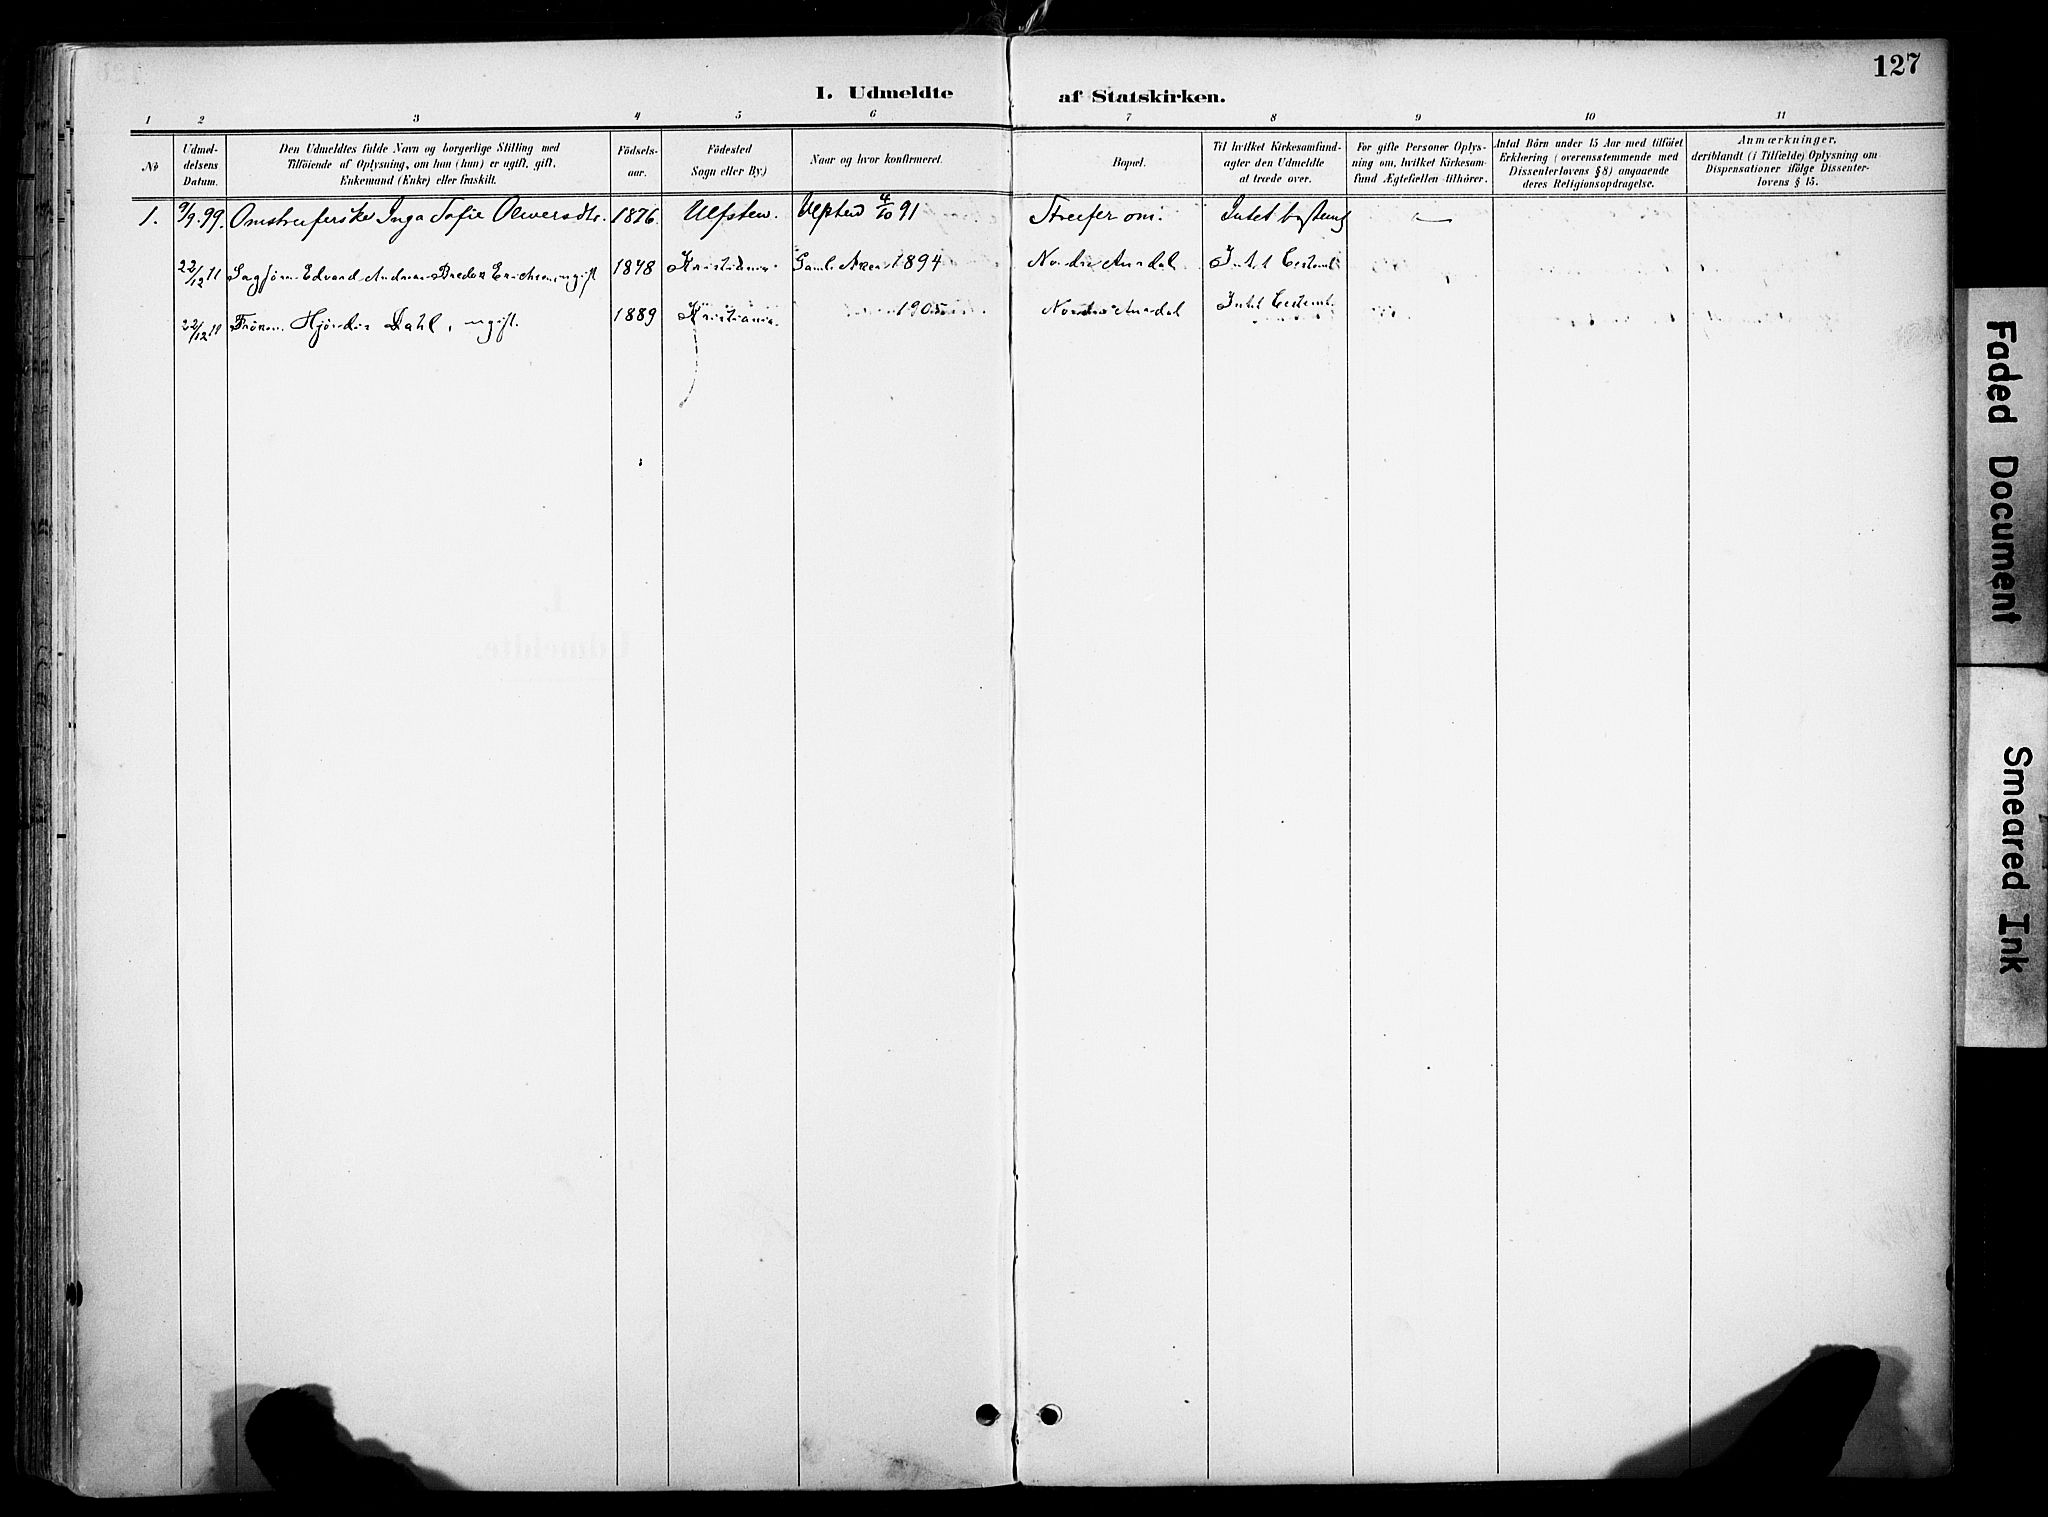 127
I. Udmeldte af Statskirken.
1 2 3 4 5 6 7 8 9 10 11
No
Udmel-
delsens
Datum.
Den Udmeldtes fulde Navn og borgerlige Stilling med
Tilföiende af Oplysning, om han (hun) er ugift, gift,
Enkemand (Enke) eller fraskilt.
Födsels-
aar.
Födested
Sogn eller By.)
Naar og hvor konfirmeret.
Bopæl.
Til hvilket Kirkesamfund-
agter den Udmeldte
at træde over.
For gifte Personer Oplys-
ning om, hvilket Kirkesam-
fund Ægtefællen tilhörer.
Antal Börn under 15 Aar med tilföiet
Erklæring (overensstemmende med
Dissenterlovens § 8) angaaende
deres Religionsopdragelse.
Anmærkninger,
deriblandt (i Tilfælde) Oplysning om
Dispensationer ifölge Dissenter-
lovens § 15.
1. 9/9.99. Omstreiferske Inga Sofie 1876. Ulfsten. Ulfsten 4/10 91 Streifer om. Intet bestemt —
22/12 11 Sagfører Edvard Andreas Erichsen, ugift 1848 Kristiania. Gamle Aker 1894 Nordre Aurdal Intet bestemt
22/12 11 Frøken Hjördis Dahl, ugift. 1889 Kristiania. 1905 Nordre Aurdal Intet bestemt.
Faded Document
Smeared Ink